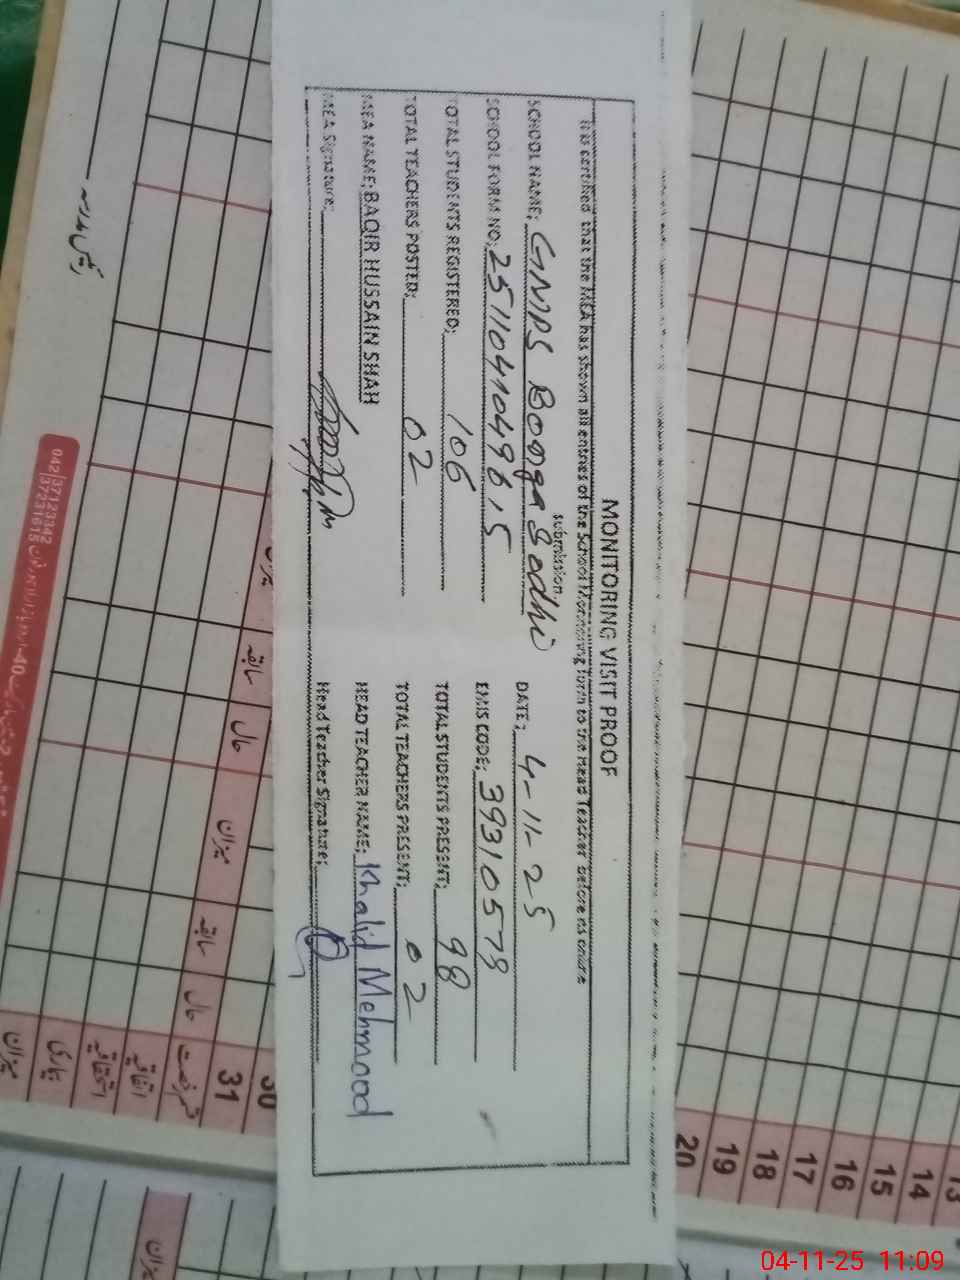 MONITORING VISIT PROOF
It is certified that the MEA has shown all entries of the School Monitoring form to the Head Teacher before its online
submission.
SCHOOL NAME: GMPS Bonga Sodhi DATE: 4-11-25
SCHOOL FORM NO: 2511041049615 EMIS CODE: 39310578
TOTAL STUDENTS REGISTERED: 106 TOTAL STUDENTS PRESENT: 98
TOTAL TEACHERS POSTED: 02 TOTAL TEACHERS PRESENT: 02
MEA NAME: BAQIR HUSSAIN SHAH HEAD TEACHER NAME: Khalid Mehmood
MEA Signature: Head Teacher Signature:
042/37123342
37231615
میزان
سابقہ
حال
میزان
سابقہ
حال
اتفاقیہ
بیماری
میزان
30
31
میزان
20
19
18
17
16
15
14
13
04-11-25 11:09